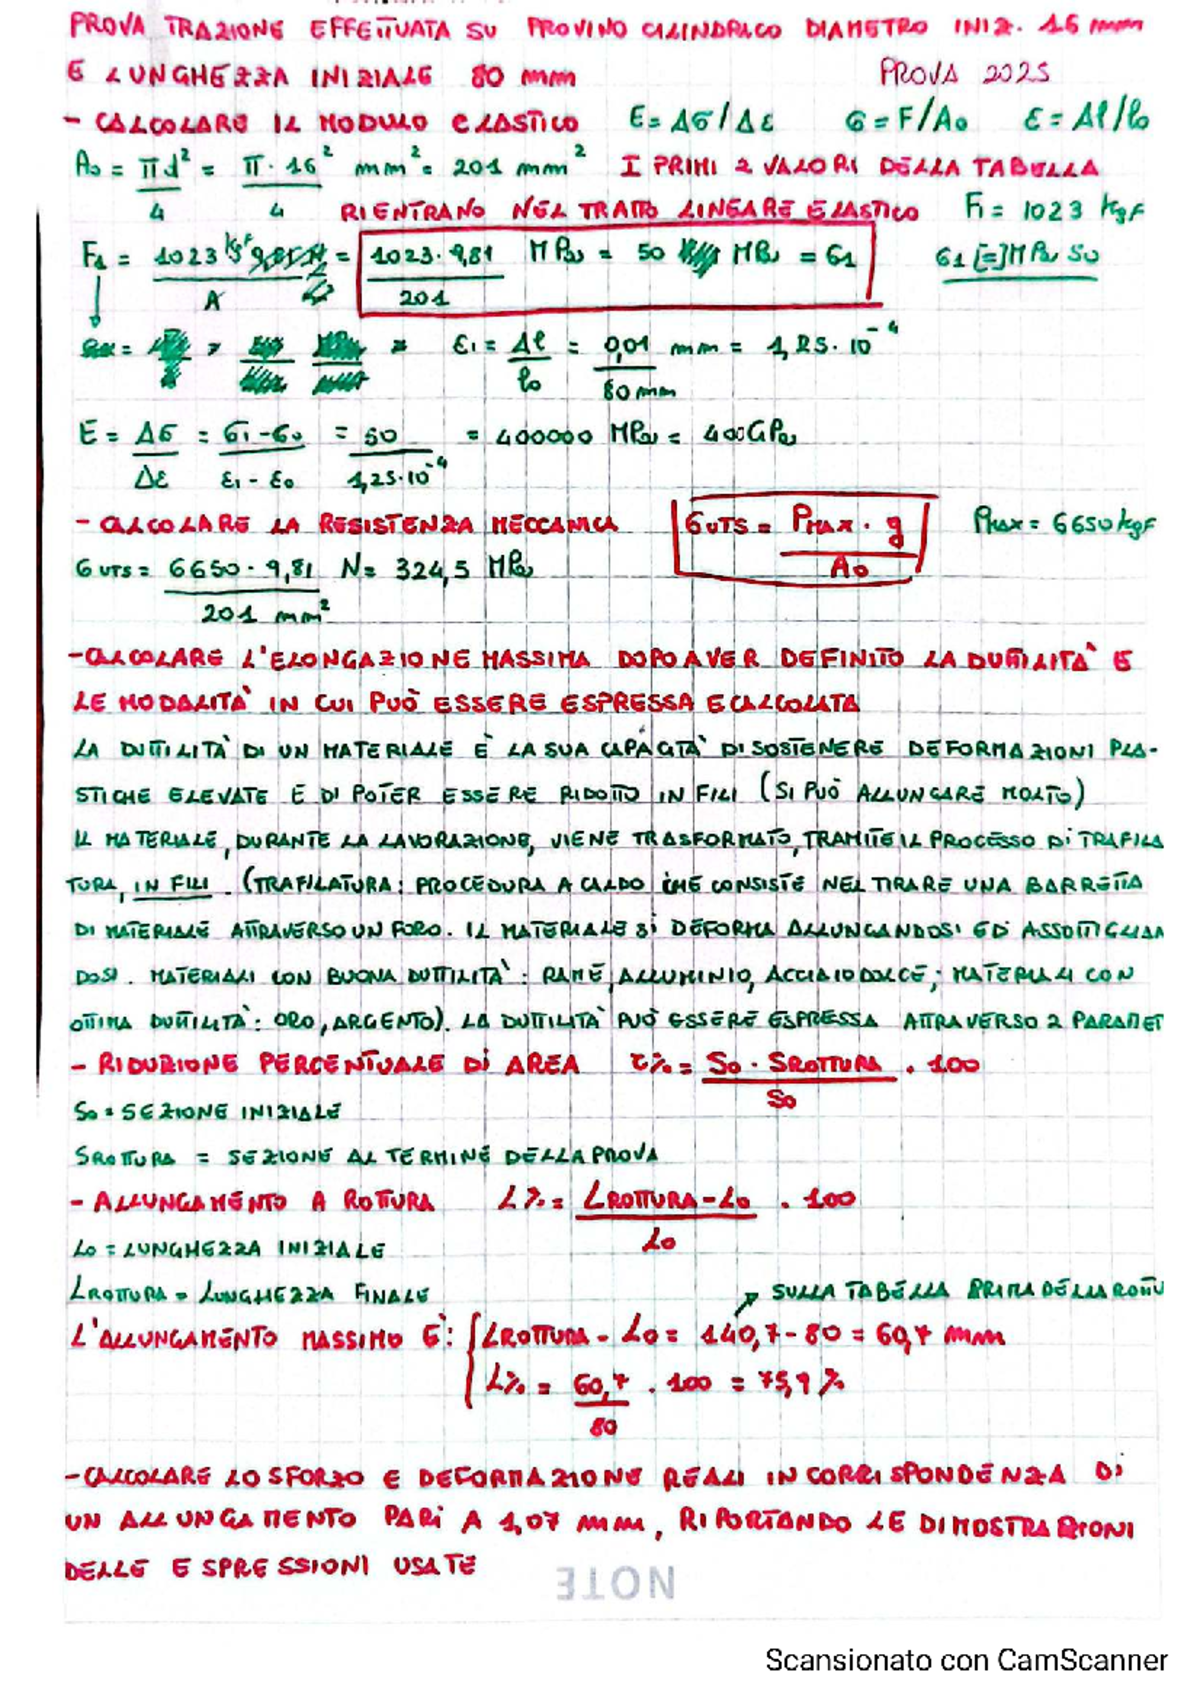 PROVA TRAZIONE EFFETTUATA SU PROVINO CILINDRICO DIAMETRO INIZ. 16 mm
E LUNGHEZZA INIZIALE 80 mm PROVA 2025
- CALCOLARE IL MODULO ELASTICO E = Δσ/Δε σ = F/A₀ ε = Δl/l₀
A₀ = πd²/4 = π·16²/4 mm² = 201 mm² I PRIMI 2 VALORI DELLA TABELLA
RIENTRANO NEL TRATTO LINEARE ELASTICO F₁ = 1023 kgF
F₁ = 1023 kgF/A = 1023·9,81/201 MPa = 50 MPa = σ₁ σ₁ [=] MPa 50
ε₁ = Δl/l₀ = 0,01 mm/80 mm = 1,25·10⁻⁴
E = Δσ/Δε = σ₁-σ₀/ε₁-ε₀ = 50/1,25·10⁻⁴ = 400000 MPa = 400GPa
- CALCOLARE LA RESISTENZA MECCANICA σUTS = PMAX · g/A₀ PMAX = 6650 kgF
σUTS = 6650·9,81 N/201 mm² = 324,5 MPa
- CALCOLARE L'ELONGAZIONE MASSIMA DOPO AVER DEFINITO LA DUTTILITÀ E
LE MODALITÀ IN CUI PUÒ ESSERE ESPRESSA E CALCOLATA
LA DUTTILITÀ DI UN MATERIALE È LA SUA CAPACITÀ DI SOSTENERE DEFORMAZIONI PLA-
STICHE ELEVATE E DI POTER ESSERE RIDOTTO IN FILI (SI PUÒ ALLUNGARE MOLTO)
IL MATERIALE, DURANTE LA LAVORAZIONE, VIENE TRASFORMATO, TRAMITE IL PROCESSO DI TRAFILA
TURA, IN FILI. (TRAFILATURA: PROCEDURA A CALDO CHE CONSISTE NEL TIRARE UNA BARRETTA
DI MATERIALE ATTRAVERSO UN FORO. IL MATERIALE SI DEFORMA ALLUNGANDOSI ED ASSOTTIGLIAN
DOSI. MATERIALI CON BUONA DUTTILITÀ: RAME, ALLUMINIO, ACCIAIO DOLCE; MATERIALI CON
OTTIMA DUTTILITÀ: ORO, ARGENTO). LA DUTTILITÀ PUÒ ESSERE ESPRESSA ATTRAVERSO 2 PARAMET
- RIDUZIONE PERCENTUALE DI AREA Z% = S₀ - SROTTURA/S₀ · 100
S₀ = SEZIONE INIZIALE
SROTTURA = SEZIONE AL TERMINE DELLA PROVA
- ALLUNGAMENTO A ROTTURA L% = LROTTURA - L₀/L₀ · 100
L₀ = LUNGHEZZA INIZIALE
LROTTURA = LUNGHEZZA FINALE SULLA TABELLA PRIMA DELLA ROTTU
L'ALLUNGAMENTO MASSIMO È: { LROTTURA - L₀ = 140,7 - 80 = 60,7 mm
L% = 60,7/80 · 100 = 75,9 %
- CALCOLARE LO SFORZO E DEFORMAZIONE REALI IN CORRISPONDENZA DI
UN ALLUNGAMENTO PARI A 1,07 mm, RIPORTANDO LE DIMOSTRAZIONI
DELLE ESPRESSIONI USATE
NOTE
Scansionato con CamScanner